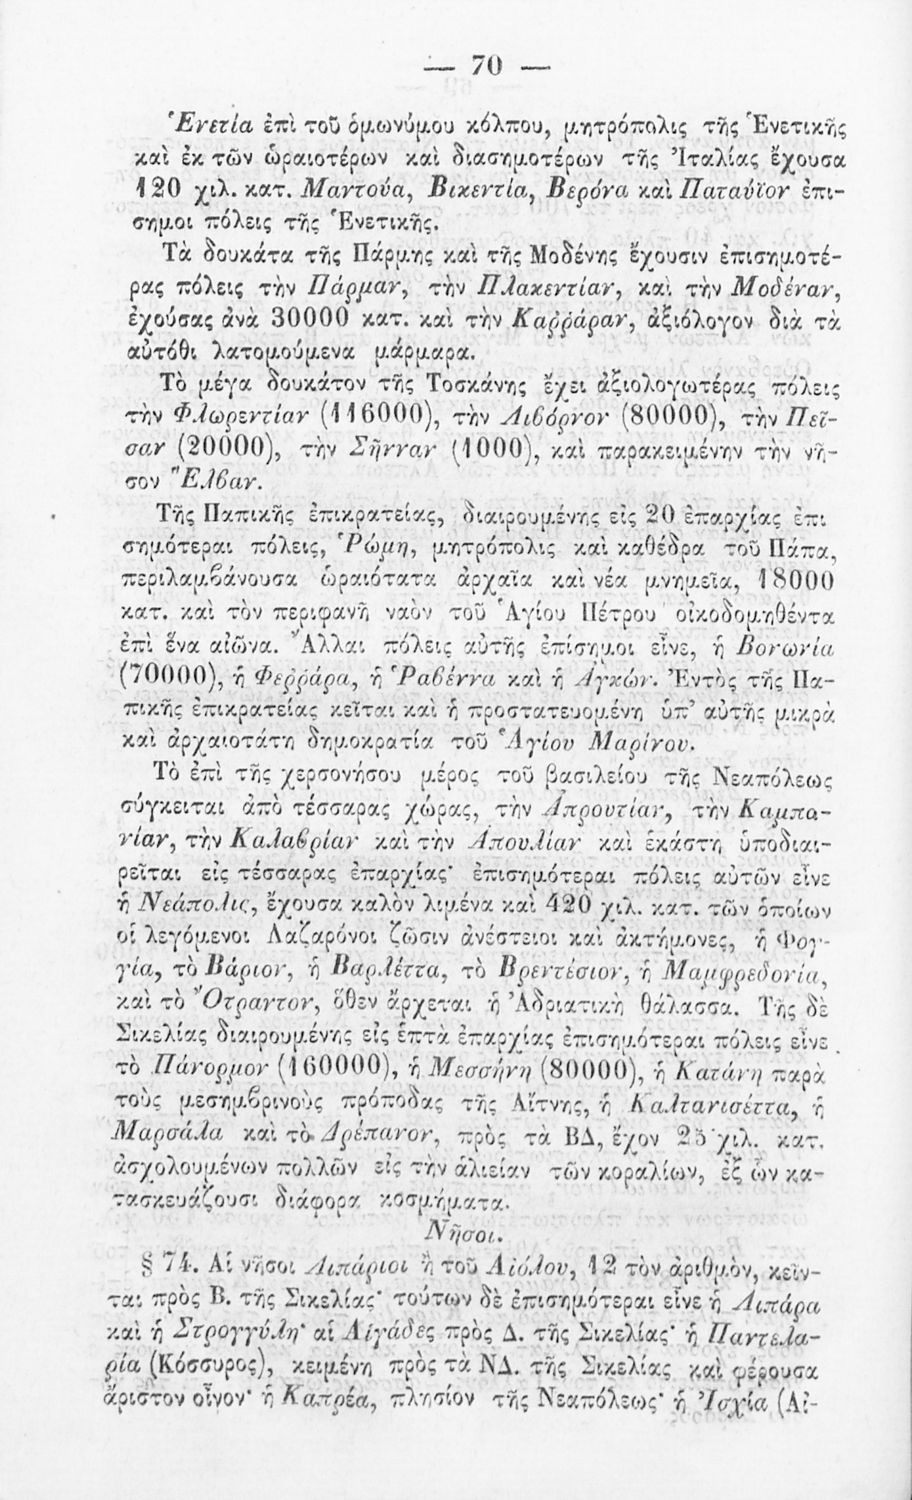 — 70 —
Ἑνετία ἐπὶ τοῦ ὁμωνύμου κόλπου, μητρόπολις τῆς Ἑνετικῆς
καὶ ἐκ τῶν ὡραιοτέρων καὶ διασημοτέρων τῆς Ἰταλίας ἔχουσα
120 χιλ. κατ. Μαντούα, Βικεντία, Βερόνα καὶ Παταύϊον ἐπι-
σημοι πόλεις τῆς Ἑνετικῆς.
Τὰ δουκάτα τῆς Πάρμης καὶ τῆς Μοδένης ἔχουσιν ἐπισημοτέ-
ρας πόλεις τὴν Πάρμαν, τὴν Πλακεντίαν, καὶ τὴν Μοδέναν,
ἐχούσας ἀνὰ 30000 κατ. καὶ τὴν Καῤῥάραν, ἀξιόλογον διὰ τὰ
αὐτόθι λατομούμενα μάρμαρα.
Τὸ μέγα δουκάτον τῆς Τοσκάνης ἔχει ἀξιολογωτέρας πόλεις
τὴν Φλωρεντίαν (116000), τὴν Λιβόρνον (80000), τὴν Πεῖ-
σαν (20000), τὴν Σῆνναν (1000), καὶ παρακειμένην τὴν νῆ-
σον Ἔλβαν.
Τῆς Παπικῆς ἐπικρατείας, διαιρουμένης εἰς 20 ἐπαρχίας ἐπι
σημότεραι πόλεις, Ῥώμη, μητρόπολις καὶ καθέδρα τοῦ Πάπα,
περιλαμβάνουσα ὡραιότατα ἀρχαῖα καὶ νέα μνημεῖα, 18000
κατ. καὶ τὸν περιφανῆ ναὸν τοῦ Ἁγίου Πέτρου οἰκοδομηθέντα
ἐπὶ ἕνα αἰῶνα. Ἄλλαι πόλεις αὐτῆς ἐπίσημοι εἶνε, ἡ Βονωνία
(70000), ἡ Φεῤῥάρα, ἡ Ῥαβέννα καὶ ἡ Ἀγκών. Ἐντὸς τῆς Πα-
πικῆς ἐπικρατείας κεῖται καὶ ἡ προστατευομένη ὑπ’ αὐτῆς μικρὰ
καὶ ἀρχαιοτάτη δημοκρατία τοῦ Ἁγίου Μαρίνου.
Τὸ ἐπὶ τῆς χερσονήσου μέρος τοῦ βασιλείου τῆς Νεαπόλεως
σύγκειται ἀπὸ τέσσαρας χώρας, τὴν Ἀπρουτίαν, τὴν Καμπα-
νίαν, τὴν Καλαβρίαν καὶ τὴν Ἀπουλίαν καὶ ἑκάστη ὑποδιαι-
ρεῖται εἰς τέσσαρας ἐπαρχίας· ἐπισημότεραι πόλεις αὐτῶν εἶνε
ἡ Νεάπολις, ἔχουσα καλὸν λιμένα καὶ 420 χιλ. κατ. τῶν ὁποίων
οἱ λεγόμενοι Λαζαρόνοι ζῶσιν ἀνέστειοι καὶ ἀκτήμονες, ἡ Φογ-
γία, τὸ Βάριον, ἡ Βαρλέττα, τὸ Βρεντέσιον, ἡ Μαμφρεδονία,
καὶ τὸ Ὄτραντον, ὅθεν ἄρχεται ἡ Ἀδριατικὴ θάλασσα. Τῆς δὲ
Σικελίας διαιρουμένης εἰς ἑπτὰ ἐπαρχίας ἐπισημότεραι πόλεις εἶνε
τὸ Πάνορμον (160000), ἡ Μεσσήνη (80000), ἡ Κατάνη παρὰ
τοὺς μεσημβρινοὺς πρόποδας τῆς Αἴτνης, ἡ Καλτανισέττα, ἡ
Μαρσάλα καὶ τὸ Δρέπανον, πρὸς τὰ ΒΔ, ἔχον 25 χιλ. κατ.
ἀσχολουμένων πολλῶν εἰς τὴν ἁλιείαν τῶν κοραλίων, ἐξ ὧν κα-
τασκευάζουσι διάφορα κοσμήματα.
Νῆσοι.
§ 74. Αἱ νῆσοι Λιπάριοι ἢ τοῦ Αἰόλου, 12 τὸν ἀριθμὸν, κεῖν-
ται πρὸς Β. τῆς Σικελίας· τούτων δὲ ἐπισημότεραι εἶνε ἡ Λιπάρα
καὶ ἡ Στρογγύλη· αἱ Αἰγάδες πρὸς Δ. τῆς Σικελίας· ἡ Παντελα-
ρία (Κόσσυρος), κειμένη πρὸς τὰ ΝΔ. τῆς Σικελίας καὶ φέρουσα
ἄριστον οἶνον· ἡ Καπρέα, πλησίον τῆς Νεαπόλεως· ἡ Ἰσχία (Αἰ-